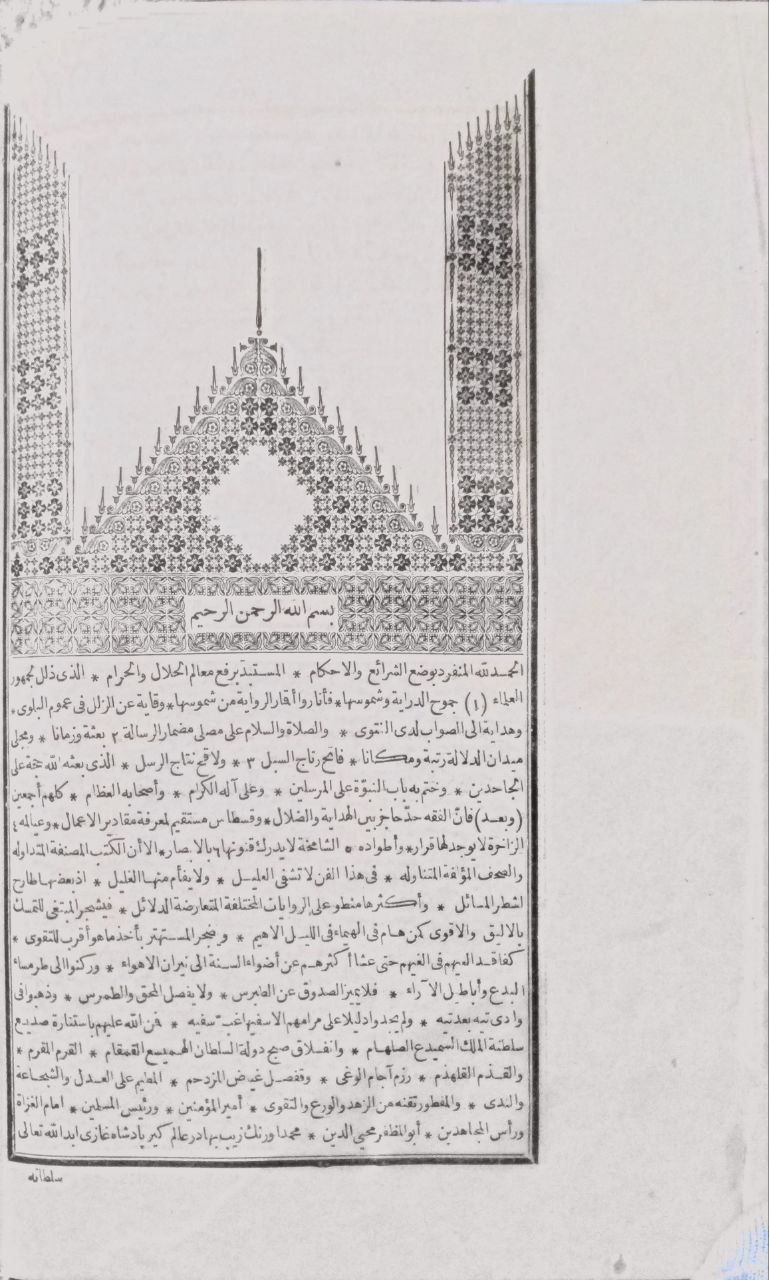 بسم الله الرحمن الرحيم
الحمد لله المنفرد بوضع الشرائع والاحكام * المستبد برفع معالم الحلال والحرام * الذى ذلل لجمهور
العلماء (١) جموح الدراية وشموسها * فأناروا أقمار الرواية من شموسها * وقاية عن الزلل فى عموم البلوى *
وهداية الى الصواب لدى الفتوى * والصلاة والسلام على مصلى مضمار الرسالة ٢ بعثة وزمانا * ومجلى
ميدان الدلالة رتبة ومكانا * فاتح رتاج السبل ٣ * ولاقح نتاج الرسل * الذى بعثه الله حجة على
الجاحدين * وختم به باب النبوة على المرسلين * وعلى آله الكرام * وأصحابه العظام * كلهم أجمعين
(وبعد) فان الفقه حد حاجز بين الهداية والضلال * وقسطاس مستقيم لمعرفة مقادير الاعمال * وعيالمه ٤
الزاخرة لا يوجد لها قرار * وأطواده ٥ الشامخة لا يدرك قنونها ٦ بالابصار * الا أن الكتب المصنفة المتداوله
والصحف المؤلفة المتناوله * فى هذا الفن لا تشفى العليل * ولا يفأم منها الغليل * اذ بعضها طارح
لشطر المسائل * وأكثرها منطو على الروايات المختلفة المتعارضة الدلائل * فيشجر المبتغى للتمسك
بالاليق والاقوى كمن هام فى الهيماء فى الليل الاهيم * وضجر المستهتر بأخذ ما هو أقرب للتقوى *
كفاقد الميهم فى الغيهم حتى عشا أكثرهم عن أضواء السنة الى نيران الاهواء * وركنوا الى طرمساء
البدع وأباطيل الآراء * فلا يميز الصدوق عن الطبرس * ولا يفصل المحق والطمرس * وذهبوا فى
وادى تيه بعد تيه * ولم يجدوا دليلا على مرامهم الا سفيها غب سفيه * فمن الله عليهم باستنارة صديع
سلطنة الملك السميدع الصلهام * وانفلاق صبح دولة السلطان الهميسع القمقام * القرم المقرم *
والقذم القلهذم * رزم آجام الوغى * وقفصل غياض المزدحم * المطيم على العدل والشجاعة
والندى * والمفطور تقنه من الزهد والورع والتقوى * أمير المؤمنين * ورئيس المسلمين * امام الغزاة
ورأس المجاهدين * أبو المظفر محيى الدين * محمد اورنك زيب بهادر عالم كير پادشاه غازى ابد الله تعالى
سلطانه